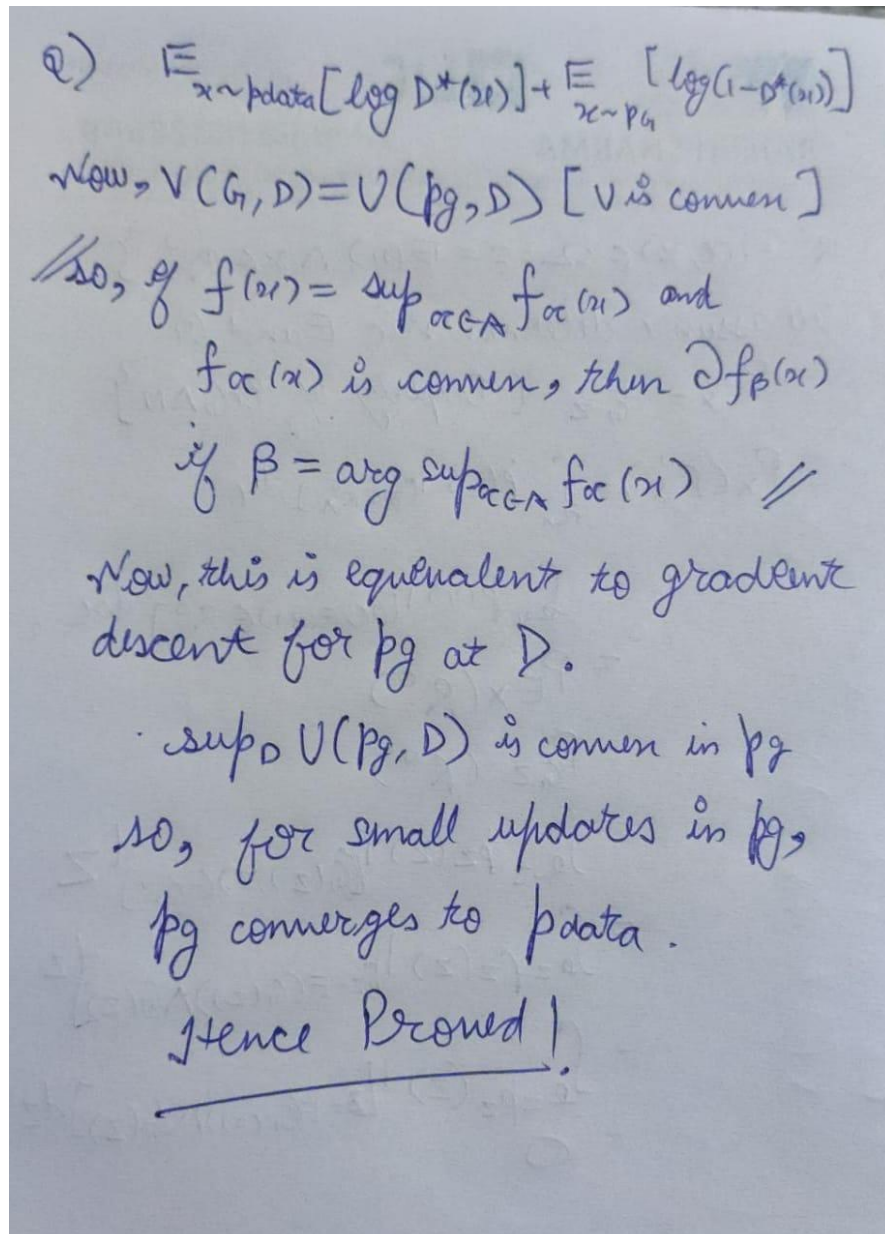 Q) E x~pdata [log D*(x)] + E x~pG [log(1-D*(x))]
Now, V(G,D) = U(pg,D) [U is convex]
//so, if f(x) = sup α∈A fα(x) and
fα(x) is convex, then ∂fβ(x)
if β = arg sup α∈A fα(x) //
Now, this is equivalent to gradient
descent for pg at D.
sup D U(pg, D) is convex in pg
so, for small updates in pg,
pg converges to pdata.
Hence Proved!